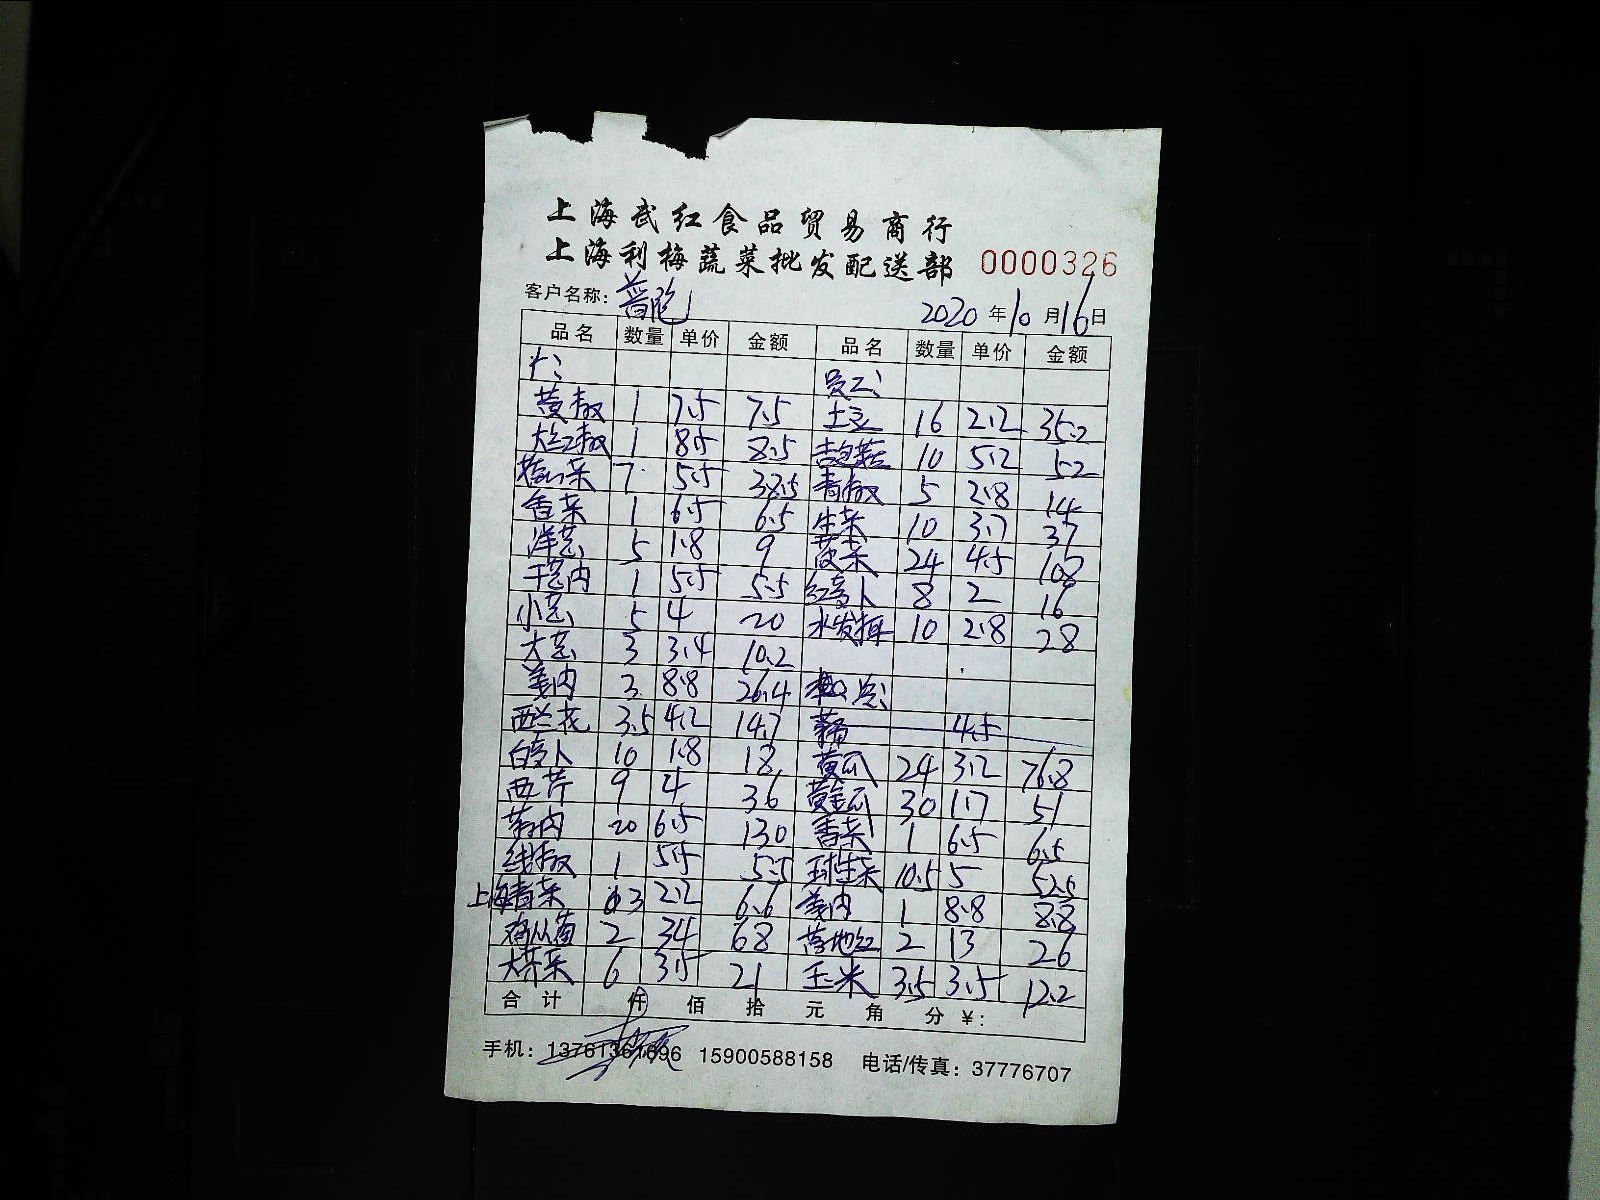 上海武红食品贸易商行
上海利梅蔬菜批发配送部 0000326
客户名称： 2020年10月16日
品名 数量 单价 金额 品名 数量 单价 金额
员工:
黄椒 1 7.5 7.5 土豆 16 2.2 35.2
大红椒 1 8.5 8.5 10 5.2 52
7 5.5 38.5 青椒 5 2.8 14
香菜 1 6.5 6.5 生菜 10 3.7 37
洋葱 5 1.8 9 24 4.5 108
干葱肉 1 5.5 5.5 红萝卜 8 2 16
小葱 5 4 20 水发木耳 10 2.8 28
大葱 3 3.4 10.2
姜肉 3 8.8 26.4
西兰花 3.5 4.2 14.7 4.5
白萝卜 10 1.8 18 黄瓜 24 3.2 76.8
西芹 9 4 36 黄金瓜 30 1.7 51
20 6.5 130 香菜 1 6.5 6.5
线椒 1 5.5 5.5 球生菜 10.5 5 52.5
上海青菜 3 2.2 6.6 姜肉 1 8.8 8.8
鸡从菌 2 34 68 落地红 2 13 26
大芥菜 6 3.5 21 玉米 3.5 3.5 12.2
合计 仟 佰 拾 元 角 分 ¥:
手机：13761361696 15900588158 电话/传真：37776707